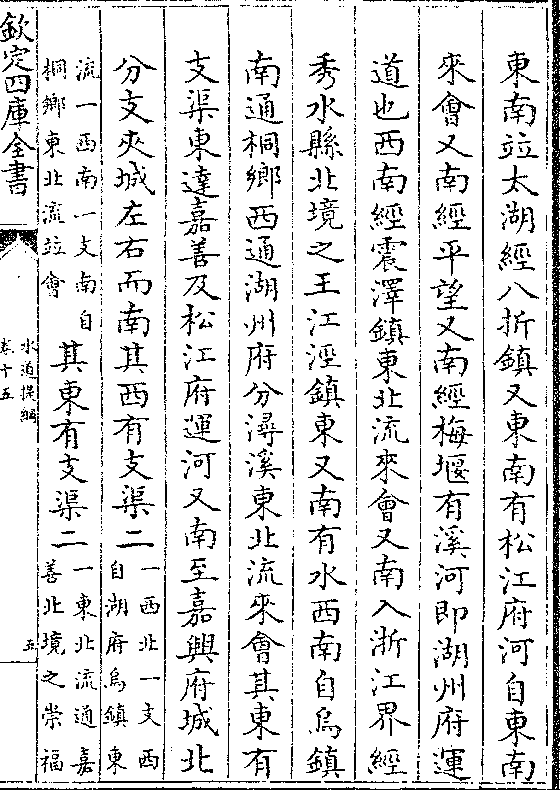 東南竝太湖經八折鎮又東南有松江府河自東南
來會又南經平望又南經梅堰有溪河即湖州府運
道也西南經震澤鎮東北流來會又南入浙江界經
秀水縣北境之王江涇鎮東又南有水西南自烏鎮
南通桐鄉西通湖州府分潯溪東北流來會其東有
支渠東達嘉善及松江府運河又南至嘉興府城北
分支夾城左右而南其西有支渠二一西北一支西自湖府烏鎮東
流一西南一支南自桐鄉東北流竝會其東有支渠二一東北流通嘉善北境之崇福
欽定四庫全書
水道提綱
卷十五
五